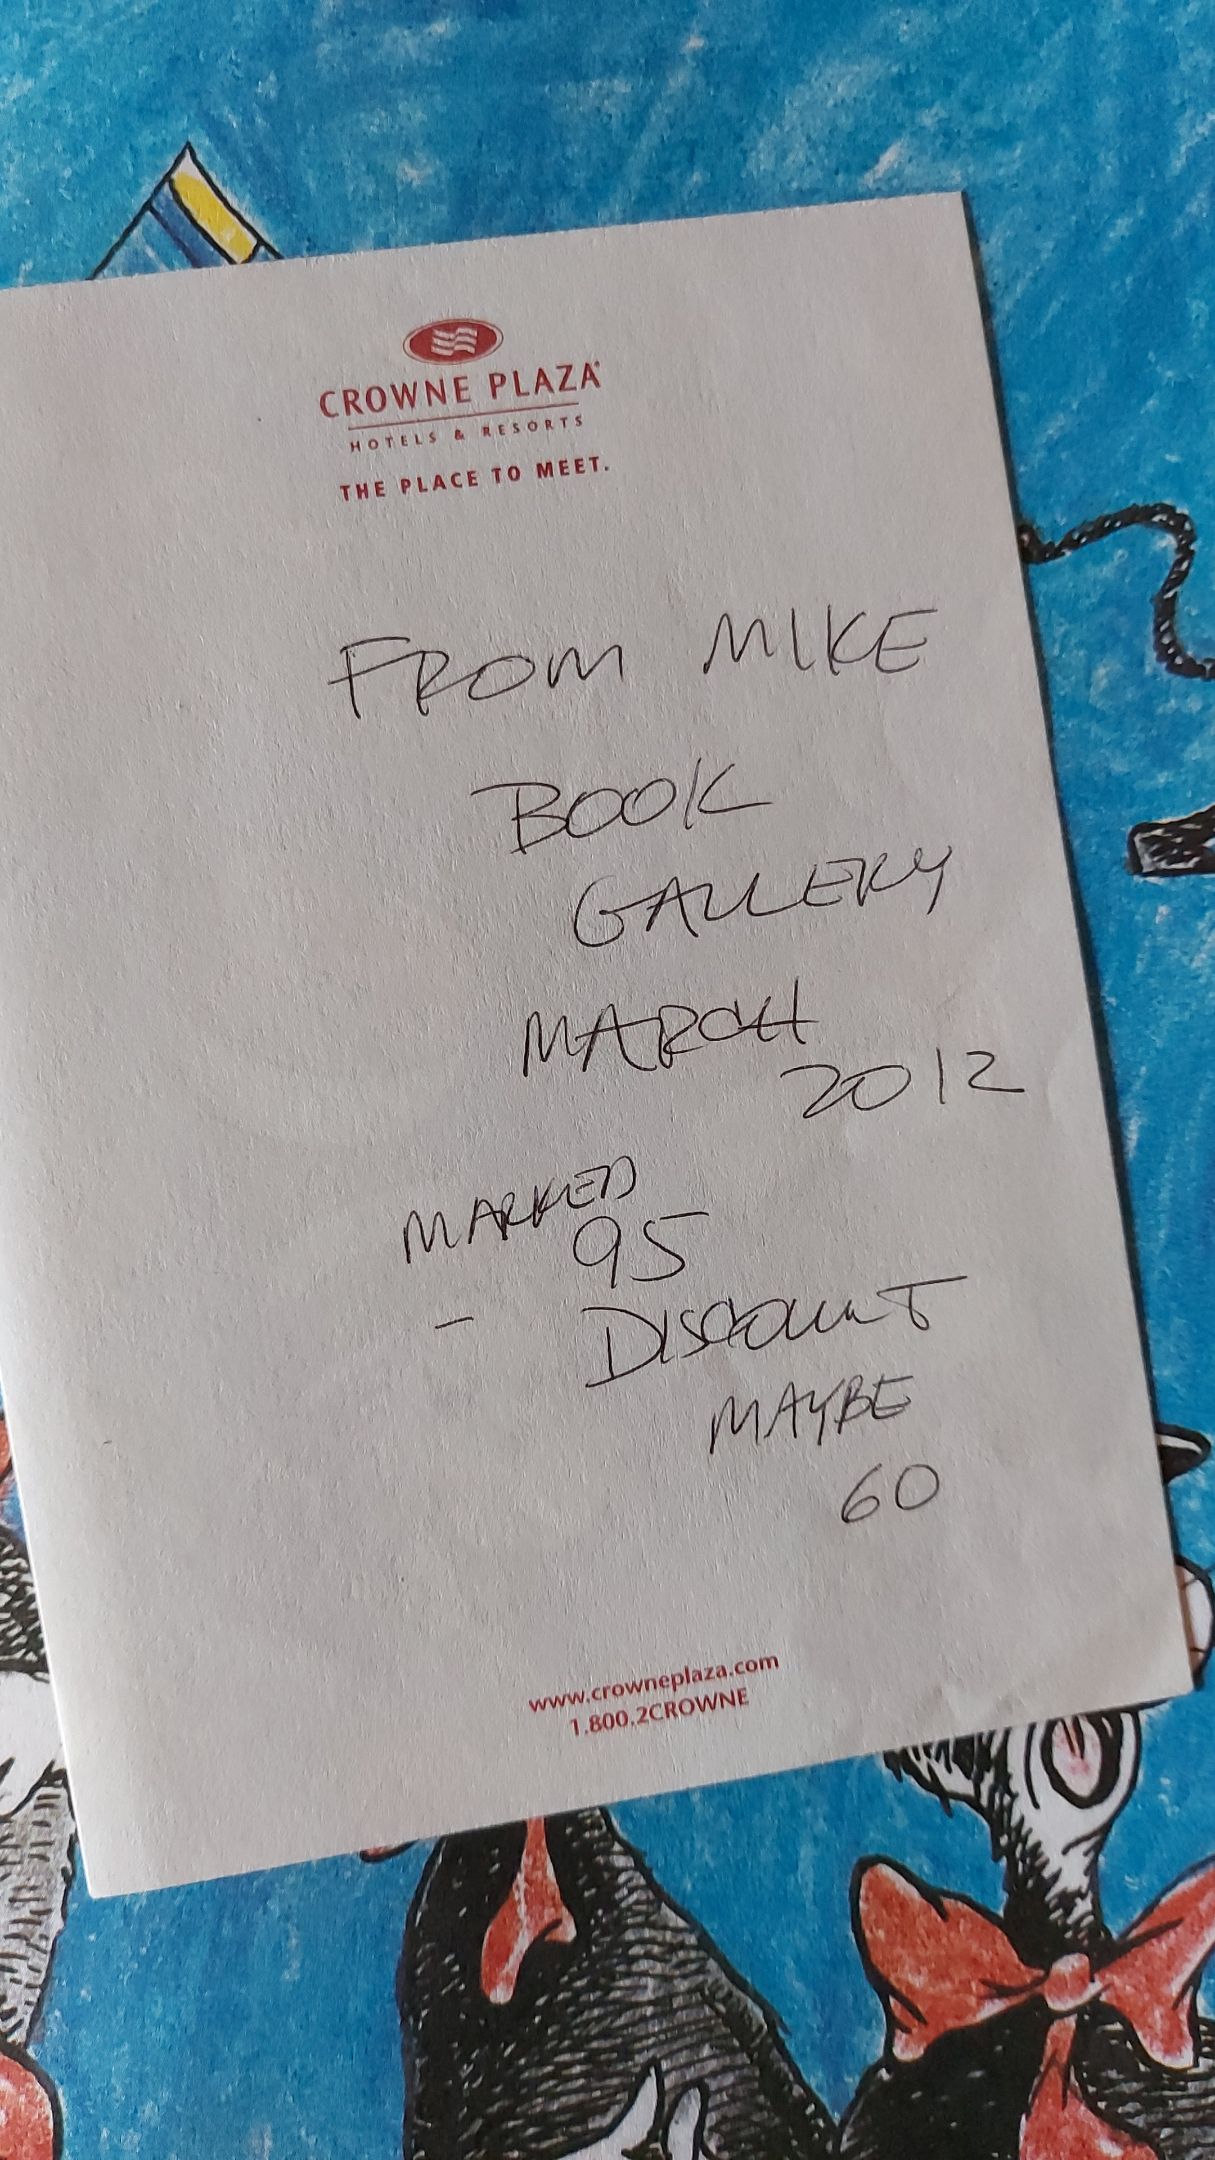 CROWNE PLAZA
HOTELS & RESORTS
THE PLACE TO MEET.
FROM MIKE
BOOK
GALLERY
MARCH
2012
MARKED
95
- DISCOUNT
MAYBE
60
www.crowneplaza.com
1.800.2CROWNE